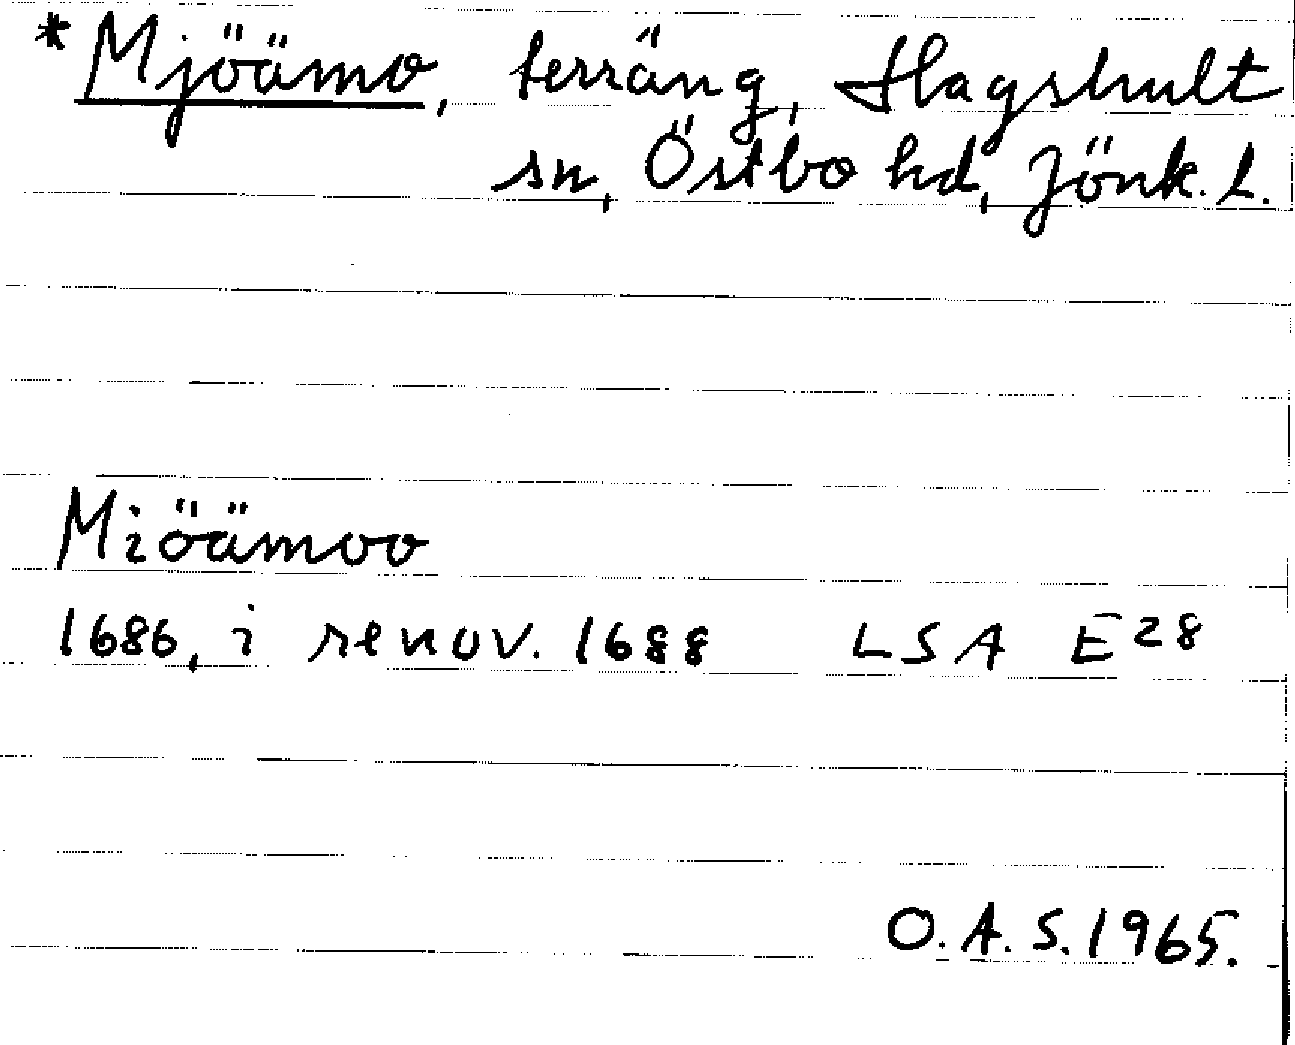 *Mjöämo, terräng, Hagshult
sn, Östbo hd, Jönk. L.
Miöämoo
1686, i renov. 1688 LSA E28
O.A.S. 1965.